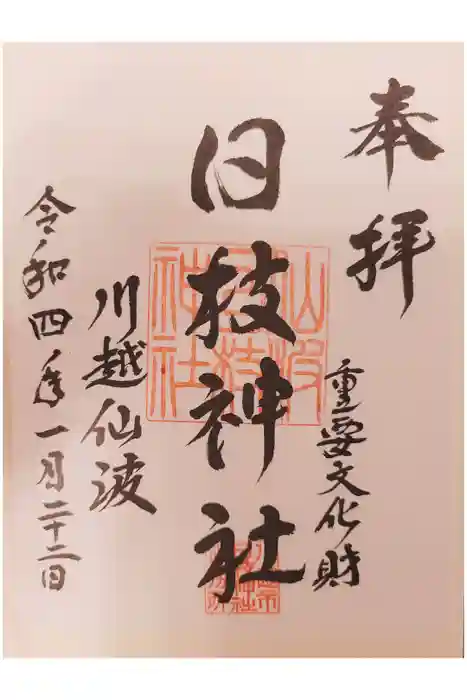 奉拝
重要文化財
日枝神社
川越仙波
令和四年一月二十二日
仙波
日枝
神社